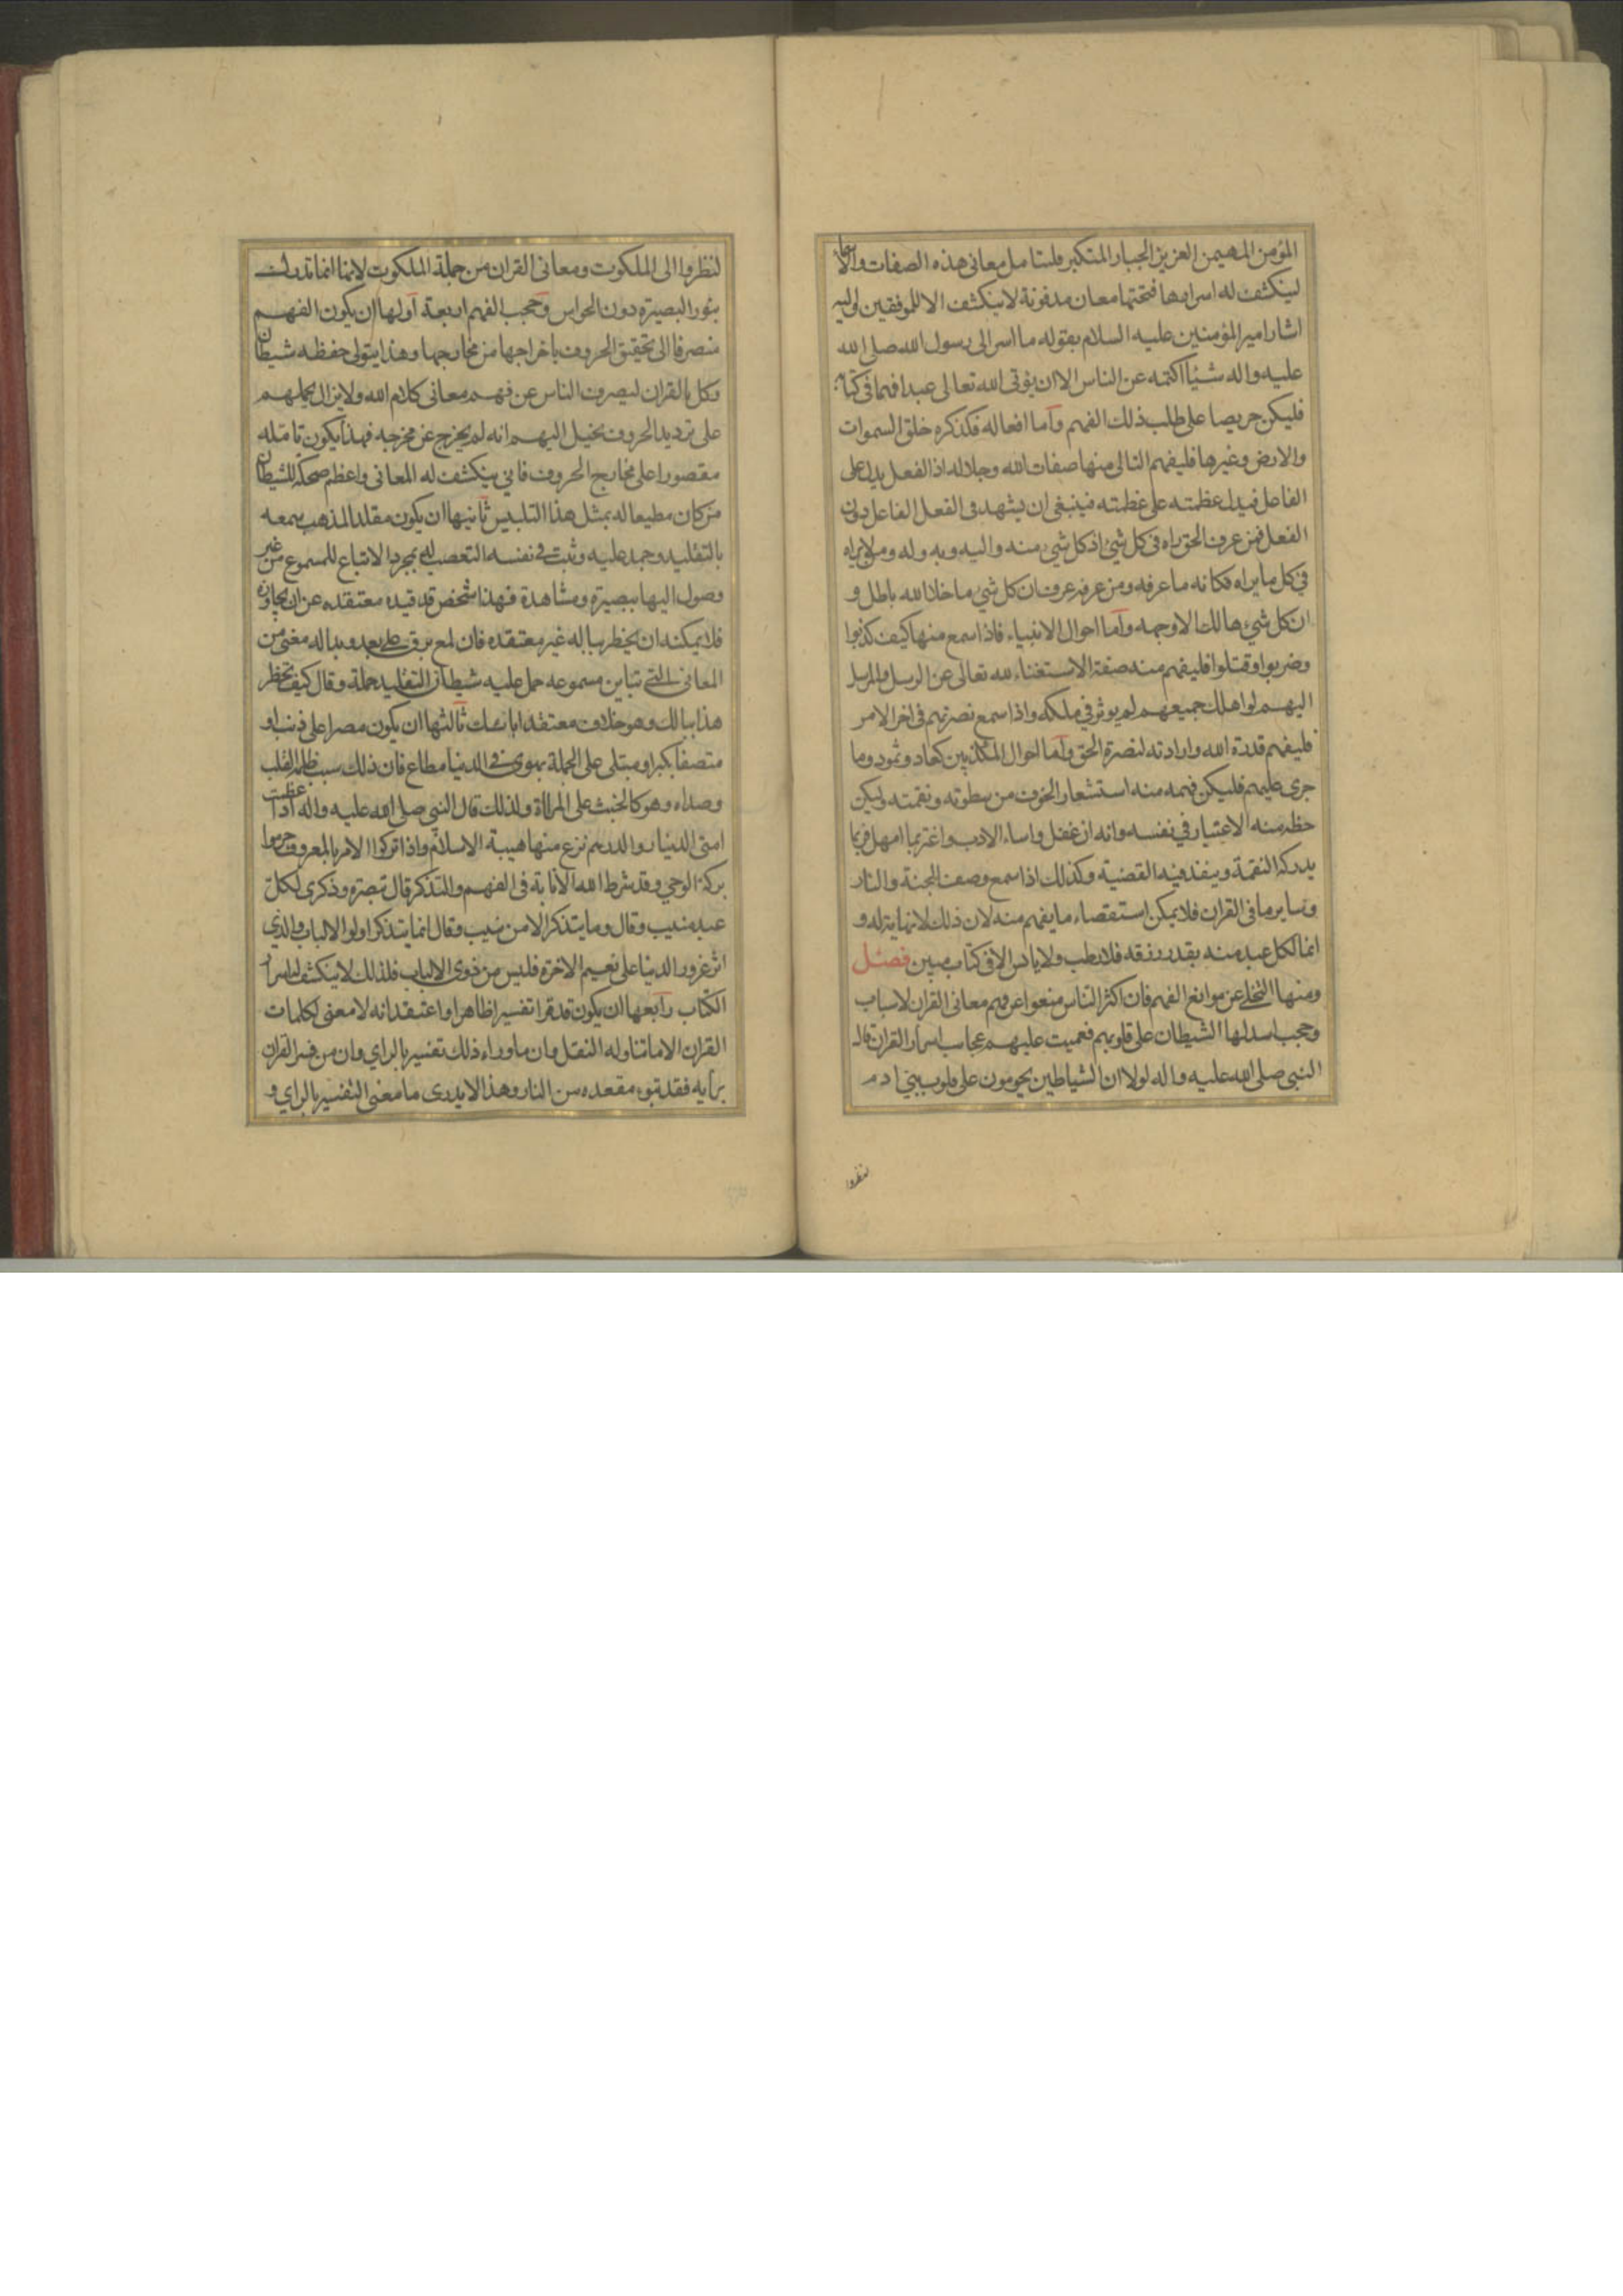 المؤمن المهيمن العزيز الجبار المتكبر فليتامل معانى هذه الصفات والاسما
لينكشف له اسرارها فتحتها معان مدفونة لا ينكشف الا للموفقين واليه
اشار امير المؤمنين عليه السلام بقوله ما اسر الى رسول الله صلى الله
عليه واله شيئا اكتمه عن الناس الا ان يؤتى الله تعالى عبدا فهما فى كتابه
فليكن حريصا على طلب ذلك الفهم واما افعاله فكذكره خلق السموات
والارض وغيرها فليفهم التالى منها صفات الله وجلاله اذ الفعل يدل على
الفاعل فيدل عظمته على عظمته فينبغى ان يشهد فى الفعل الفاعل دون
الفعل فمن عرف الحق راه فى كل شئ اذ كل شئ منه واليه وبه وله ومن لا يراه
فى كل ما يراه فكانه ما عرفه ومن عرفه عرف ان كل شئ ما خلا الله باطل و
ان كل شئ هالك الا وجهه واما احوال الانبياء فاذا سمع منها كيف كذبوا
وضربوا وقتلوا فليفهم منه صفة الاستغناء لله تعالى عن الرسل والمرسل
اليهم لو اهلك جميعهم لم يوثر فى ملكه واذا سمع نصرتهم فى اخر الامر
فليفهم قدرة الله وارادته لنصرة الحق واما احوال المكذبين كعاد وثمود وما
جرى عليهم فليكن فهمه منه استشعار الخوف من سطوته ونقمته وليكن
حظه منه الاعتبار في نفسه وانه ان غفل واساء الادب واغتر بما امهل فربما
يدركه النقمة وينفذ فيه القضية وكذلك اذا سمع وصف الجنة والنار
وساير ما فى القران فلا يمكن استقصاء ما يفهم منه لان ذلك لا نهاية له و
انما لكل عبد منه بقدر رزقه فلا رطب ولا يابس الا فى كتاب مبين فصل
ومنها التخلى عن موانع الفهم فان اكثر الناس منعوا عن فهم معانى القران لاسباب
وحجب اسدلها الشيطان على قلوبهم فعميت عليهم عجايب اسرار القران قال
النبى صلى الله عليه واله لولا ان الشياطين يحومون على قلوب بني ادم
لنظروا
لنظروا الى الملكوت ومعانى القران من جملة الملكوت لانها انما تدرك
بنور البصيرة دون الحواس وحجب الفهم اربعة اولها ان يكون الفهم
منصرفا الى تحقيق الحروف باخراجها من مخارجها وهذا يتولى حفظه شيطان
وكل بالقران ليصرف الناس عن فهم معانى كلام الله ولا يزال يحملهم
على ترديد الحروف يخيل اليهم انه لم يخرج عن مخرجه فهذا يكون تامله
مقصورا على مخارج الحروف فانى ينكشف له المعانى واعظم ضحكة للشيطان
من كان مطيعا له بمثل هذا التلبيس ثانيها ان يكون مقلدا لمذهب سمعه
بالتقليد وجمد عليه وثبت فى نفسه التعصب له بمجرد الاتباع للمسموع من غير
وصول اليها ببصيرة ومشاهدة فهذا شخص قد قيده معتقده عن ان يجاوزه
فلا يمكنه ان يخطر بباله غير معتقده فان لمع برق على بعد وبدا له معنى من
المعانى التى تباين مسموعه حمل عليه شيطان التقليد حملة وقال كيف يخطر
هذا ببالك وهو خلاف معتقد ابائك ثالثها ان يكون مصرا على ذنب او
متصفا بكبر او مبتلى على الجملة بهوى فى الدنيا مطاع فان ذلك سبب ظلمة القلب
وصداه وهو كالخبث على المراة ولذلك قال النبى صلى الله عليه واله اذا عظمت
امتى الدينار والدرهم نزع منها هيبة الاسلام واذا تركوا الامر بالمعروف حرموا
بركة الوحى وقد شرط الله الانابة فى الفهم والتذكر قال تبصرة وذكرى لكل
عبد منيب وقال وما يتذكر الا من ينيب وقال انما يتذكر اولوا الالباب والذي
اثر غرور الدنيا على نعيم الاخرة فليس من ذوى الالباب فلذلك لا ينكشف له اسرار
الكتاب رابعها ان يكون قد قرا تفسيرا ظاهرا واعتقد انه لا معنى لكلمات
القران الا ما تناوله النقل وان ما وراء ذلك تفسير بالراي وان من فسر القران
برايه فقد تبوء مقعده من النار وهذا لا يدرى ما معنى التفسير بالراي و